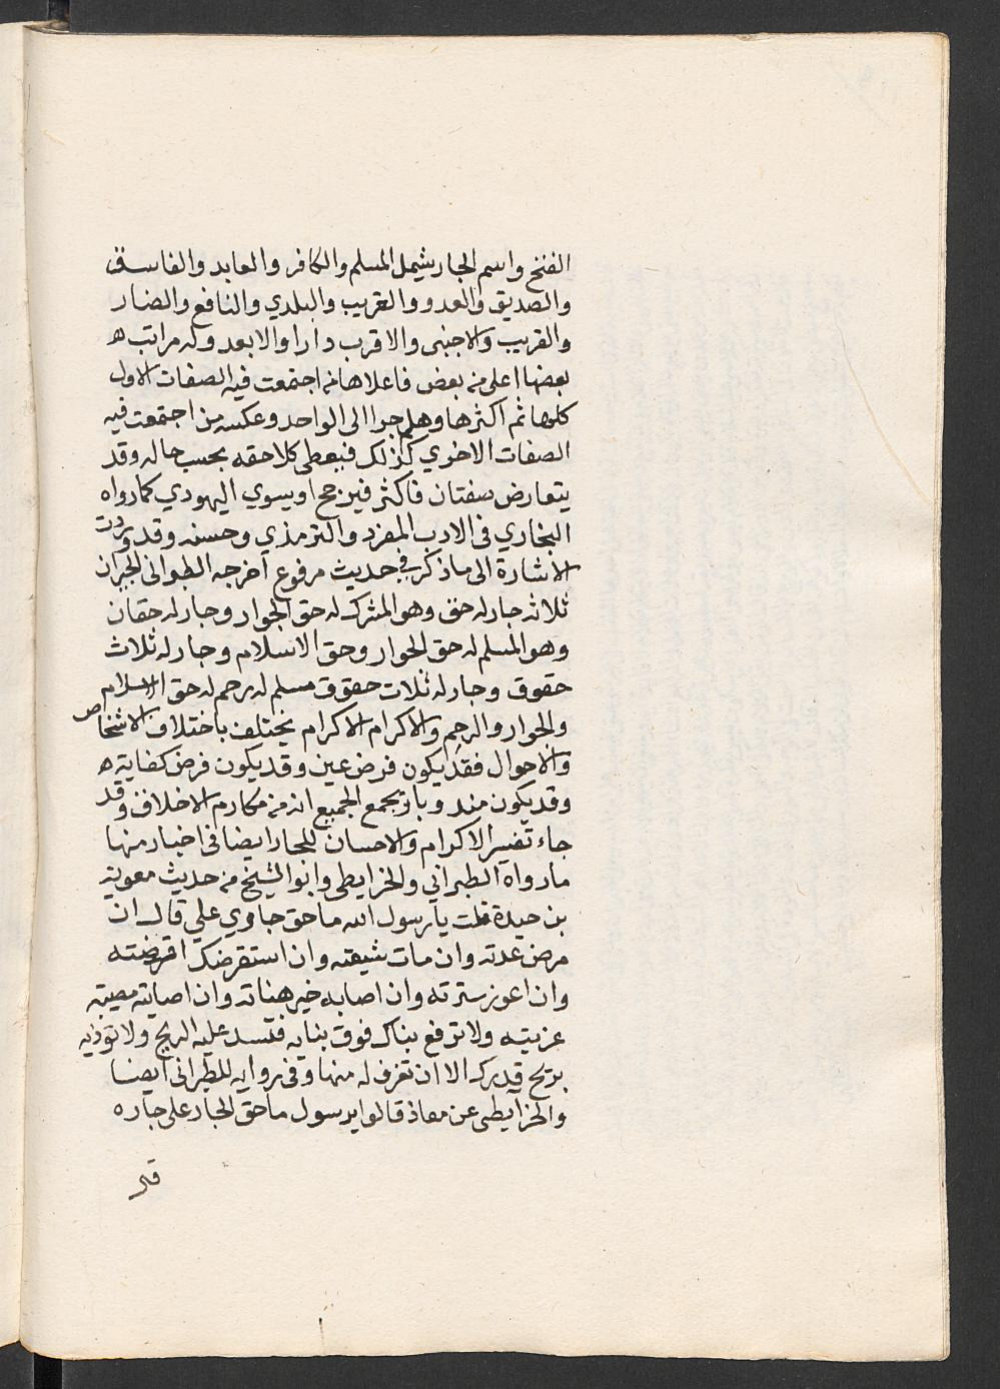 الفتح واسم الجار يشمل المسلم والكافر والعابد والفاسق
والصديق والعدو والغريب والبلدي والنافع والضار
والقريب والاجنبى والاقرب دارا والابعد وله مراتب
بعضها اعلى من بعض فاعلاها من اجتمعت فيه الصفات الاول
كلها ثم اكثرها وهلم جرا الى الواحد وعكسه من اجتمعت فيه
الصفات الاخري كذلك فيعطى كلا حقه بحسب حاله وقد
يتعارض صفتان فاكثر فيرجح اويسوي اليهودي كمارواه
البخاري فى الادب المفرد والترمذي وحسنه وقد وردت
الاشارة الى ماذكر في حديث مرفوع اخرجه الطبرانى الجيران
ثلاثه جار له حق وهو المشرك له حق الجوار وجار له حقان
وهو المسلم له حق الجوار وحق الاسلام وجار له ثلاث
حقوق وجار له ثلاث حقوق مسلم له رحم له حق الاسلام
والجوار والرحم والاكرام الاكرام يختلف باختلاف الاشخاص
والاحوال فقد يكون فرض عين وقد يكون فرض كفاية
وقد يكون مندوبا ويجمع الجميع انه من مكارم الاخلاق وقد
جاء تفسير الاكرام والاحسان للجار ايضا فى اخبار منها
مارواه الطبراني والخرايطى وابو الشيخ من حديث معوية
بن حيدة قلت يا رسول الله ما حق جاري علي قال ان
مرض عدته وان مات شيعته وان استقرضك اقرضته
وان اعوز سترته وان اصابه خير هناته وان اصابته مصيبة
عزيته ولا ترفع بناك فوق بنايه فتسد عليه الريح ولا توذيه
بريح قدرك الا ان تغرف له منها وفى رواية للطبرانى ايضا
والخرايطى عن معاذ قالوا يرسول ما حق الجار على جاره